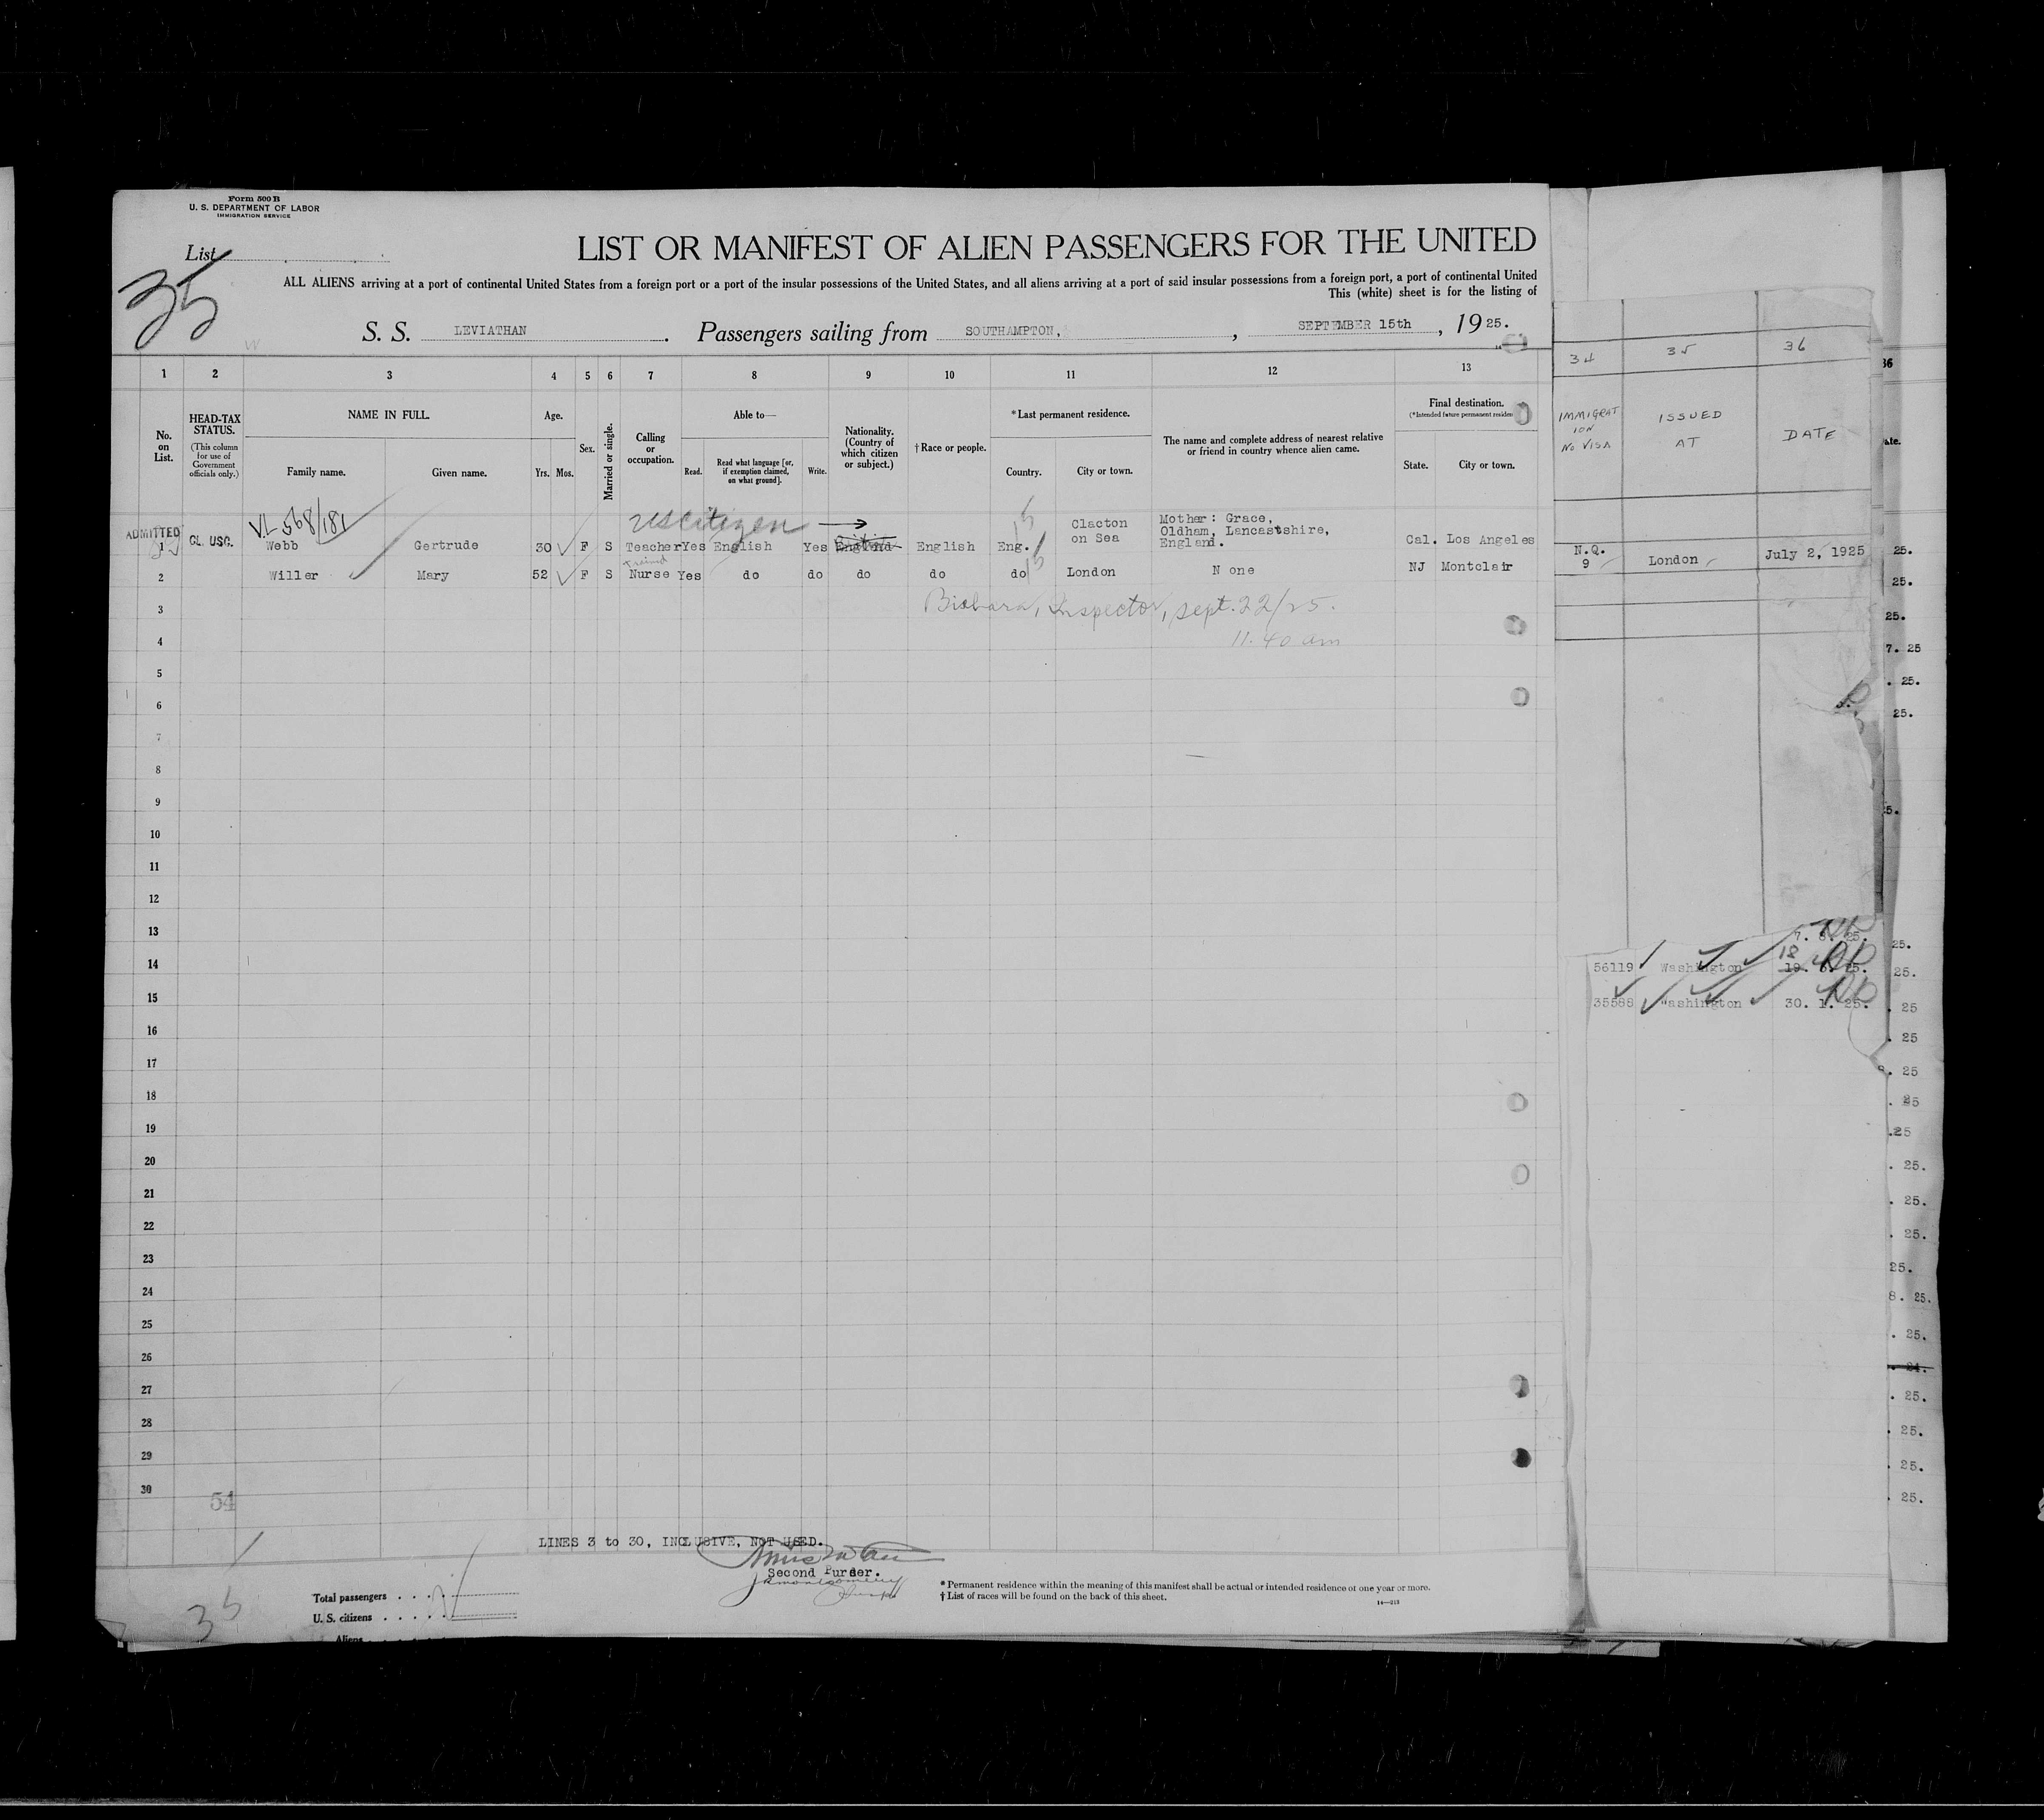 Form 500 B
U. S. DEPARTMENT OF LABOR
IMMIGRATION SERVICE
List
35
LIST OR MANIFEST OF ALIEN PASSENGERS FOR THE UNITED
ALL ALIENS arriving at a port of continental United States from a foreign port or a port of the insular possessions of the United States, and all aliens arriving at a port of said insular possessions from a foreign port, a port of continental United
This (white) sheet is for the listing of
S. S. LEVIATHAN. Passengers sailing from SOUTHAMPTON, , SEPTEMBER 15th, 1925.
1 2 3 4 5 6 7 8 9 10 11 12 13
34 35 36
No. on List.
HEAD-TAX STATUS.
(This column for use of Government officials only.)
NAME IN FULL.
Family name. Given name.
Age.
Yrs. Mos.
Sex.
Married or single.
Calling or occupation.
Able to—
Read. Read what language [or, if exemption claimed, on what ground]. Write.
Nationality. (Country of which citizen or subject.)
† Race or people.
*Last permanent residence.
Country. City or town.
The name and complete address of nearest relative or friend in country whence alien came.
Final destination.
(*Intended future permanent residen
State. City or town.
IMMIGRATION NO VISA
ISSUED AT
DATE
VL 568/181
US citizen
ADMITTED
1 CL. USC. Webb Gertrude 30 F S Teacher Yes English Yes England English Eng. Clacton on Sea Mother: Grace, Oldham, Lancastshire, England. Cal. Los Angeles
N.Q. 9 London July 2, 1925
Trained
2 Willer Mary 52 F S Nurse Yes do do do do do London N one NJ Montclair
3
Inspector, sept. 22/25.
4
11.40 am
5
6
7
8
9
10
11
12
13
14
56119 Washington 18 19. 25.
15
35588 Washington 30. 1. 25.
16
17
18
19
20
21
22
23
24
25
26
27
28
29
30
54
LINES 3 to 30, INCLUSIVE, NOT USED.
Second Purser.
35
Total passengers . . . .
U. S. citizens . . . . .
Aliens
* Permanent residence within the meaning of this manifest shall be actual or intended residence of one year or more.
† List of races will be found on the back of this sheet.
14—213